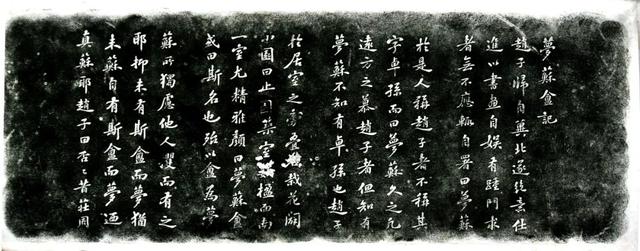 夢蘇盦記
趙子歸自冀北遂絕意仕
進以書畫自娛有踵門求
者無不應輒自署曰夢蘇
於是人稱趙子者不稱其
字卓孫而曰夢蘇久之凡
遠方之慕趙子者但知有
夢蘇不知有卓孫也趙子
於居室之旁疊栽花闢
小園曰止園築室楹而南
一室尤精雅顏曰夢蘇盦
或曰斯名也殆以盦為夢
蘇所獨慮他人夢而有之
耶抑未有斯盦而夢猶
未蘇自有斯盦而夢迺
真蘇耶趙子曰否否昔莊周